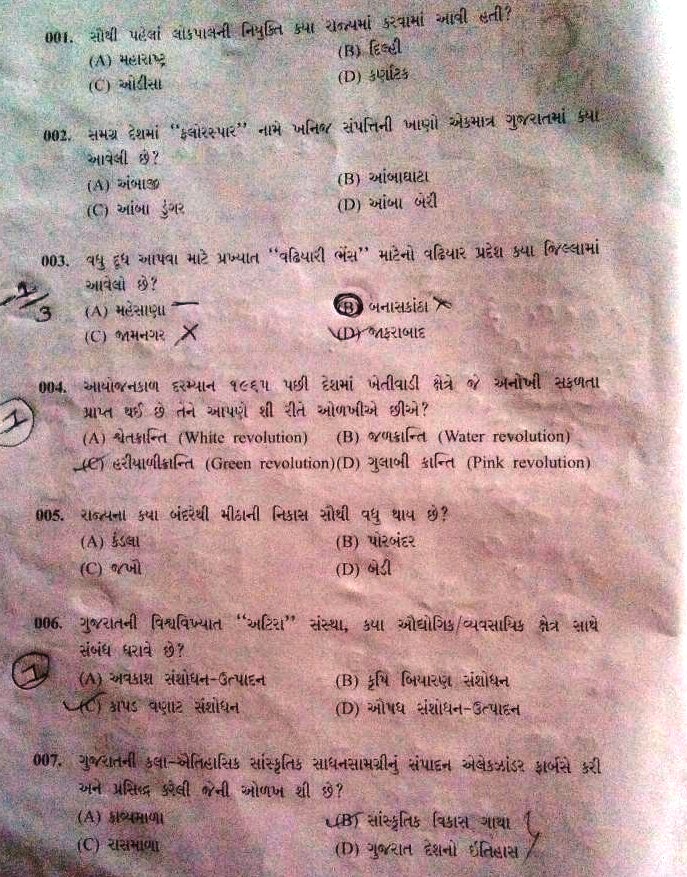 001. સૌથી પહેલાં લોકપાલની નિયુક્તિ કયા રાજ્યમાં કરવામાં આવી હતી?
(A) મહારાષ્ટ્ર (B) દિલ્હી
(C) ઓડીસા (D) કર્ણાટક
002. સમગ્ર દેશમાં “ફ્લોરસ્પાર” નામે ખનિજ સંપત્તિની ખાણો એકમાત્ર ગુજરાતમાં કયા
આવેલી છે?
(A) અંબાજી (B) આંબાઘાટા
(C) આંબા ડુંગર (D) આંબા બેરી
003. વધુ દૂધ આપવા માટે પ્રખ્યાત “વઢિયારી ભેંસ” માટેનો વઢિયાર પ્રદેશ કયા જિલ્લામાં
આવેલો છે?
(A) મહેસાણા (B) બનાસકાંઠા
(C) જામનગર (D) જાફરાબાદ
004. આયોજનકાળ દરમ્યાન ૧૯૬૫ પછી દેશમાં ખેતીવાડી ક્ષેત્રે જે અનોખી સફળતા
પ્રાપ્ત થઈ છે તેને આપણે શી રીતે ઓળખીએ છીએ?
(A) શ્વેતક્રાન્તિ (White revolution) (B) જળક્રાન્તિ (Water revolution)
(C) હરીયાળીક્રાન્તિ (Green revolution) (D) ગુલાબી ક્રાન્તિ (Pink revolution)
005. રાજ્યના કયા બંદરેથી મીઠાની નિકાસ સૌથી વધુ થાય છે?
(A) કંડલા (B) પોરબંદર
(C) જખૌ (D) બેડી
006. ગુજરાતની વિશ્વવિખ્યાત “અટિરા” સંસ્થા, કયા ઔદ્યોગિક/વ્યવસાયિક ક્ષેત્ર સાથે
સંબંધ ધરાવે છે?
(A) અવકાશ સંશોધન-ઉત્પાદન (B) કૃષિ બિયારણ સંશોધન
(C) કાપડ વણાટ સંશોધન (D) ઔષધ સંશોધન-ઉત્પાદન
007. ગુજરાતની કલા-ઐતિહાસિક સાંસ્કૃતિક સાધનસામગ્રીનું સંપાદન અલેકઝાંડર ફાર્બસે કરી
અને પ્રસિદ્ધ કરેલી જેની ઓળખ શી છે?
(A) કાવ્યમાળા (B) સાંસ્કૃતિક વિકાસ ગાથા
(C) રાસમાળા (D) ગુજરાત દેશનો ઈતિહાસ